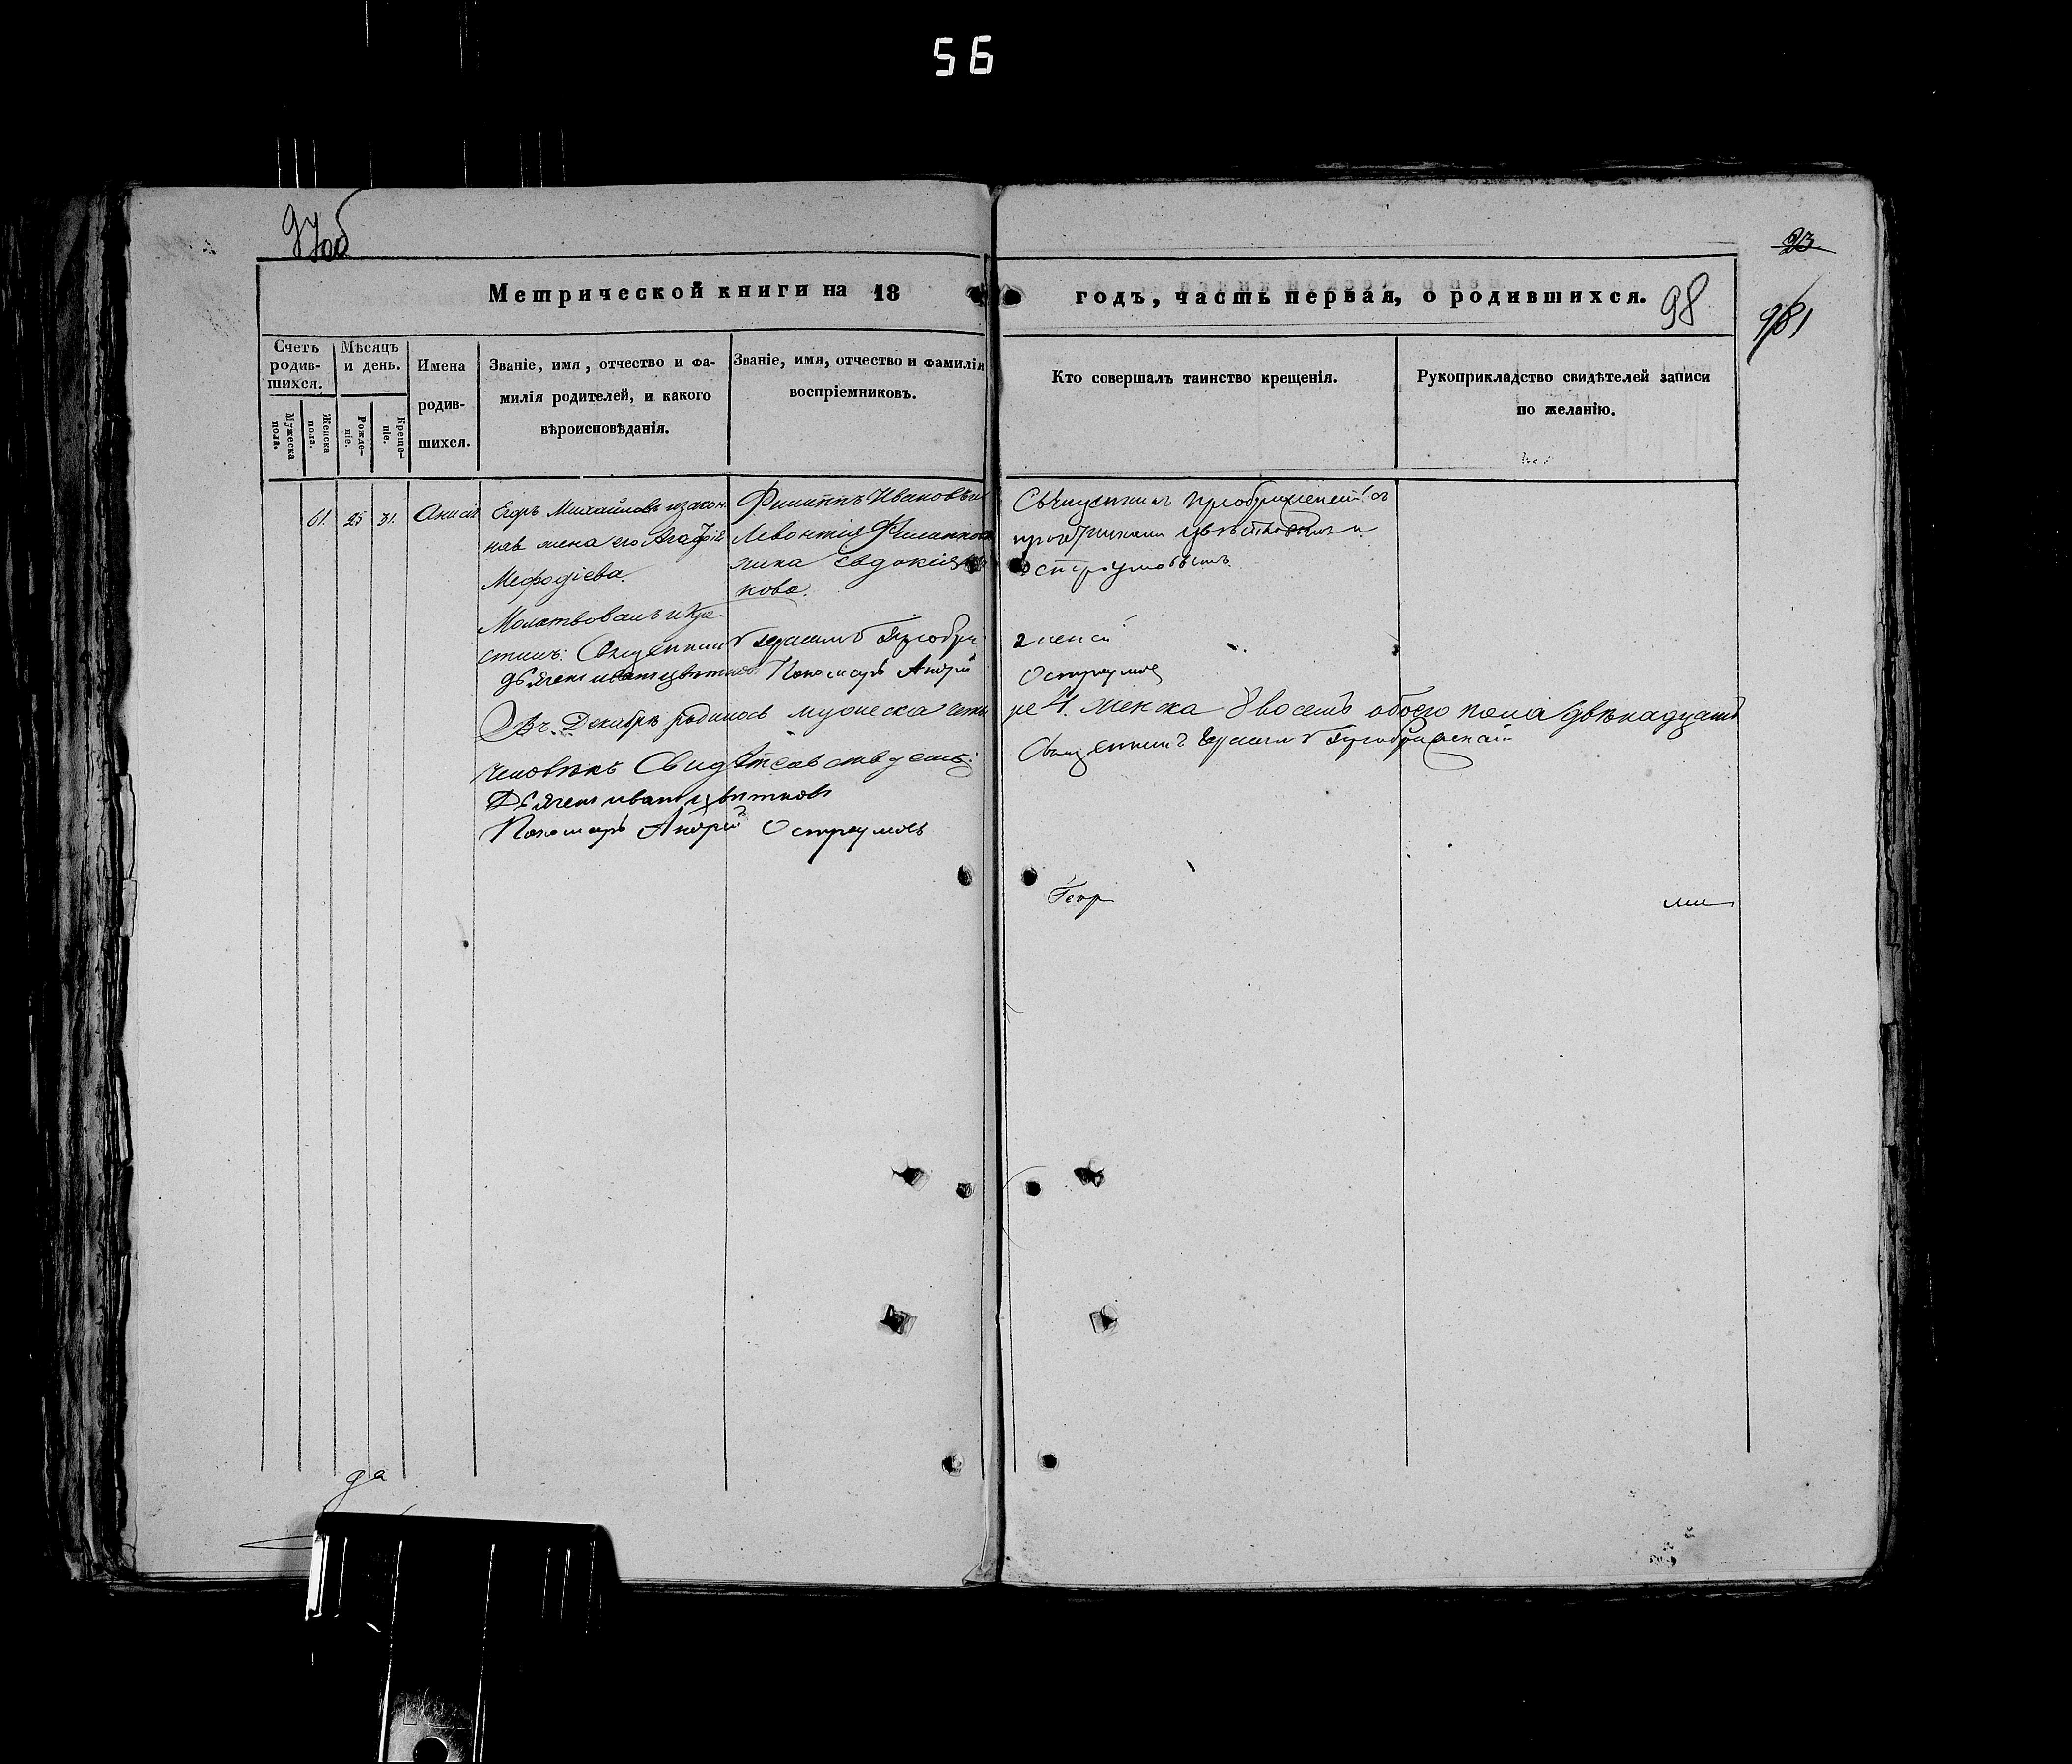 56
97об
23
98
981
Метрической книги на 18
годъ, часть первая, о родившихся.
Счетъ родив-шихся.
Мужеска пола.
Женска пола.
Мѣсяцъ и день.
Рожде-ніе.
Креще-ніе.
Имена
родив-
шихся.
Званіе, имя, отчество и фа-
милія родителей, и какого
вѣроисповѣданія.
Званіе, имя, отчество и фамилія
воспріемниковъ.
Кто совершалъ таинство крещенія.
Рукоприкладство свидѣтелей записи
по желанію.
61. 25 31. Анисія
Егоръ Михайловъ изакон
ная жена его Агафія
Мефодіева.
Филиппъ Ивановъ
Левонтія Филиппова
Евдокія
нова.
Священникъ Преображенскій съ
причетниками Цвѣтковымъ и
Остроумовымъ
Молитвовалъ и кре-
стилъ: Священникъ Герасимъ Преобра
женскій
Дьячекъ иванъ цвѣтковъ Пономарь Андрей
Остроумов
Въ Декабрѣ родилось мужеска четы
ре 4. женска 8 восемь обоего пола двѣнадцать
человѣкъ Свидѣтельствуемъ:
Священникъ Герасимъ Преображенскій
Дьячекъ иванъ цвѣтковъ
Пономарь Андрей Остроумовъ
да